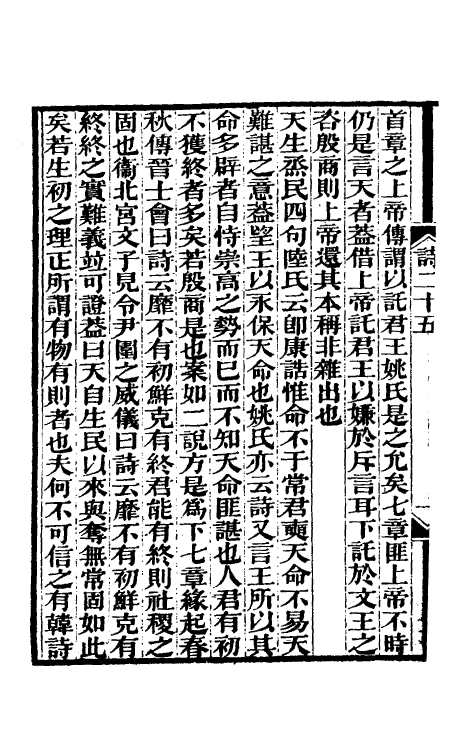 首章之上帝傳謂以託君王姚氏是之允矣七章匪上帝不時
仍是言天者葢借上帝託君王以嫌於斥言耳下託於文王之
咨殷商則上帝還其本稱非雜出也
天生烝民四句陸氏云卽康誥惟命不于常君奭天命不易天
難諶之意葢朢王以永保天命也姚氏亦云詩又言王所以其
命多辟者自恃崇高之勢而已而不知天命匪諶也人君有初
不獲終者多矣若殷商是也案如二說方是爲下七章緣起春
秋傳晉士會曰詩云靡不有初鮮克有終君能有終則社稷之
固也衞北宮文子見令尹圍之威儀曰詩云靡不有初鮮克有
終終之實難義竝可證葢曰天自生民以來與奪無常固如此
矣若生初之理正所謂有物有則者也夫何不可信之有韓詩
詩二十五